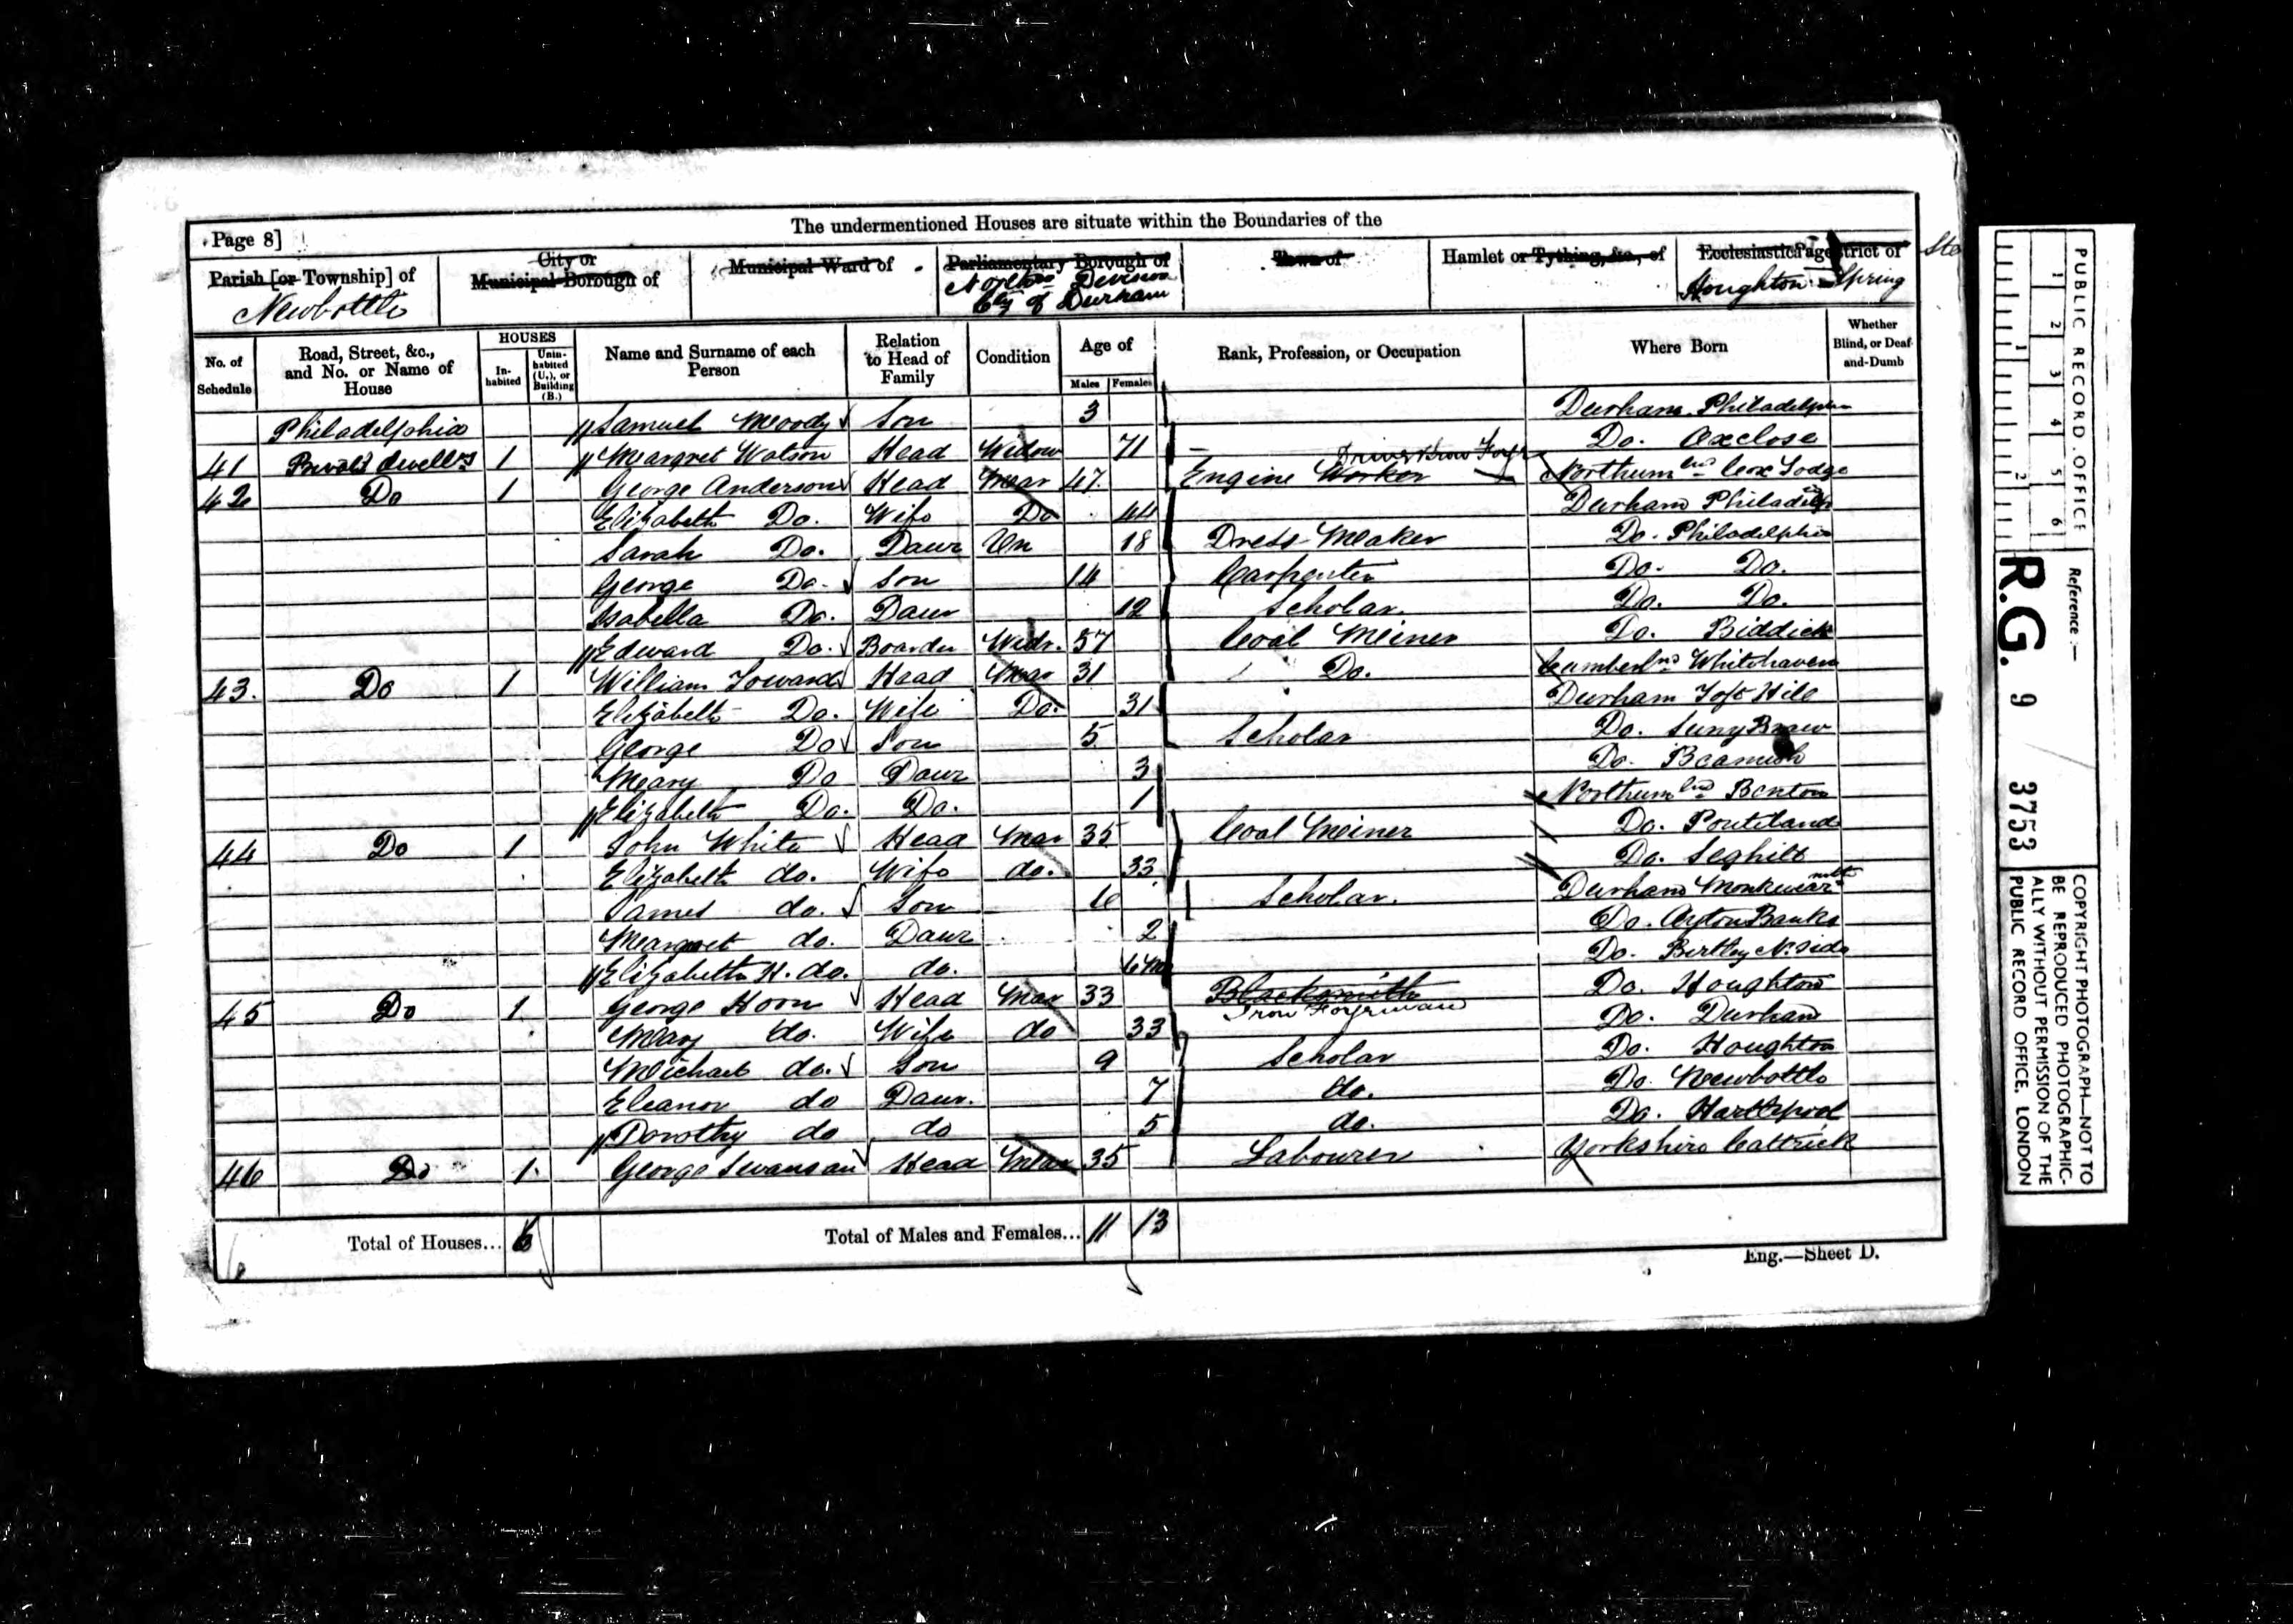 The undermentioned Houses are situate within the Boundaries of the
Page 8]
Parish [or Township] of
Newbottle
City or
Municipal Borough of
Municipal Ward of
Parliamentary Borough of
Northn Division
Cty of Durham
Town of
Hamlet or Tything, &c., of
Ecclesiastical District of
Houghton Spring
No. of Schedule
Road, Street, &c., and No. or Name of House
HOUSES
In-habited
Unin-habited (U.), or Building (B.)
Name and Surname of each Person
Relation to Head of Family
Condition
Age of
Males
Females
Rank, Profession, or Occupation
Where Born
Whether Blind, or Deaf-and-Dumb
Philadelphia Samuel Moody Son 3 Durham Philadelphia
41 Private dwellgs 1 Margret Watson Head Widow 71 — Do. Axclose
42 Do 1 George Anderson Head Mar 47 Engine Worker Northumlnd Cox Lodge
Elizabeth Do. Wife Do 44 Durham Philadelp
Sarah Do. Daur Un 18 Dress Meaker Do. Philadelphia
George Do. Son 14 Carpenter Do. Do.
Isabella Do. Daur 12 Scholar. Do. Do.
Edward Do. Boarder Widr. 57 Coal Meiner Do. Biddick
43. Do 1 William Toward Head Mar 31 Do. Cumberlnd Whitehaven
Elizabeth Do. Wife Do. 31 Durham Toft Hill
George Do Son 5 Scholar Do. Suny
Meary Do Daur 3 Do. Beamish
Elizabeth Do. Do. 1 Northumlnd Benton
44 Do 1 John White Head Mar 35 Coal Meiner Do. Pontiland
Elizabeth do. Wife do. 33 Do. Seghill
James do. Son 6 Scholar. Durham Monkwearmth
Meargret do. Daur 2 Do. Ayton Banks
Elizabeth H. do. do. 6 Mo Do. Birtley N. Side
45 Do 1 George Hoorn Head Mar 33 Blacksmith Do. Houghton
Iron Forgeman
Mary do. Wife do 33 Do. Durham
Meichael do. Son 9 Scholar Do. Houghton
Eleanor do Daur. 7 do. Do. Newbottle
Dorothy do do 5 do. Do. Hartlepool
46 Do 1. George Swansau Head Mear 35 Labourer Yorkshire Cattrick
Total of Houses... 6
Total of Males and Females... 11 13
Eng.—Sheet D.
PUBLIC RECORD OFFICE
1 2 3 4 5 6
1 2
Reference:—
R.G. 9 3753
COPYRIGHT PHOTOGRAPH—NOT TO
BE REPRODUCED PHOTOGRAPHIC-
ALLY WITHOUT PERMISSION OF THE
PUBLIC RECORD OFFICE, LONDON